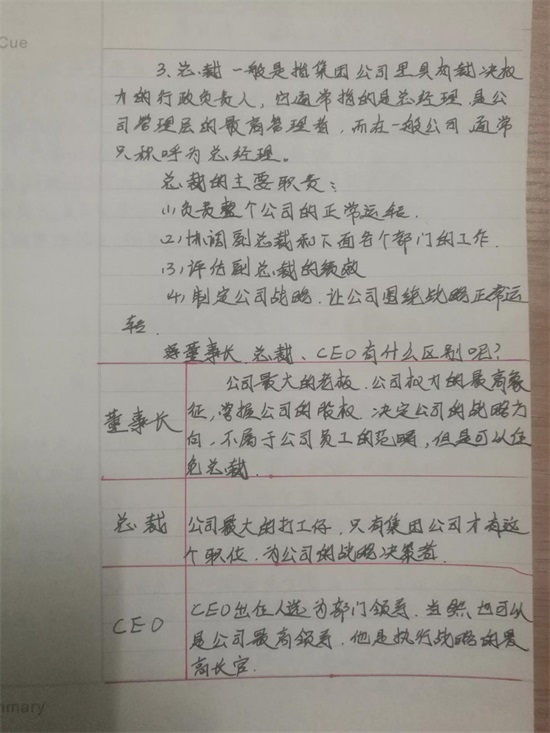 Cue
3、总裁 一般是指集团公司里具有裁决权
力的行政负责人，它通常指的是总经理，是公
司管理层的最高管理者，而在一般公司，通常
只称呼为总经理。
总裁的主要职责：
(1)负责整个公司的正常运转.
(2)协调副总裁和下面各个部门的工作.
(3)评估副总裁的绩效
(4)制定公司战略.让公司围绕战略正常运
转.
董事长、总裁、CEO有什么区别呢?
公司最大的老板.公司权力的最高象
董事长 征,掌握公司的股权.决定公司的战略方
向.不属于公司员工的范畴,但是可以任
免总裁.
总裁 公司最大的打工仔,只有集团公司才有这
个职位.为公司的战略决策者.
CEO出任人选为部门领导.当然,也可以
CEO 是公司最高领导.他是执行战略的最
高长官.
mmary